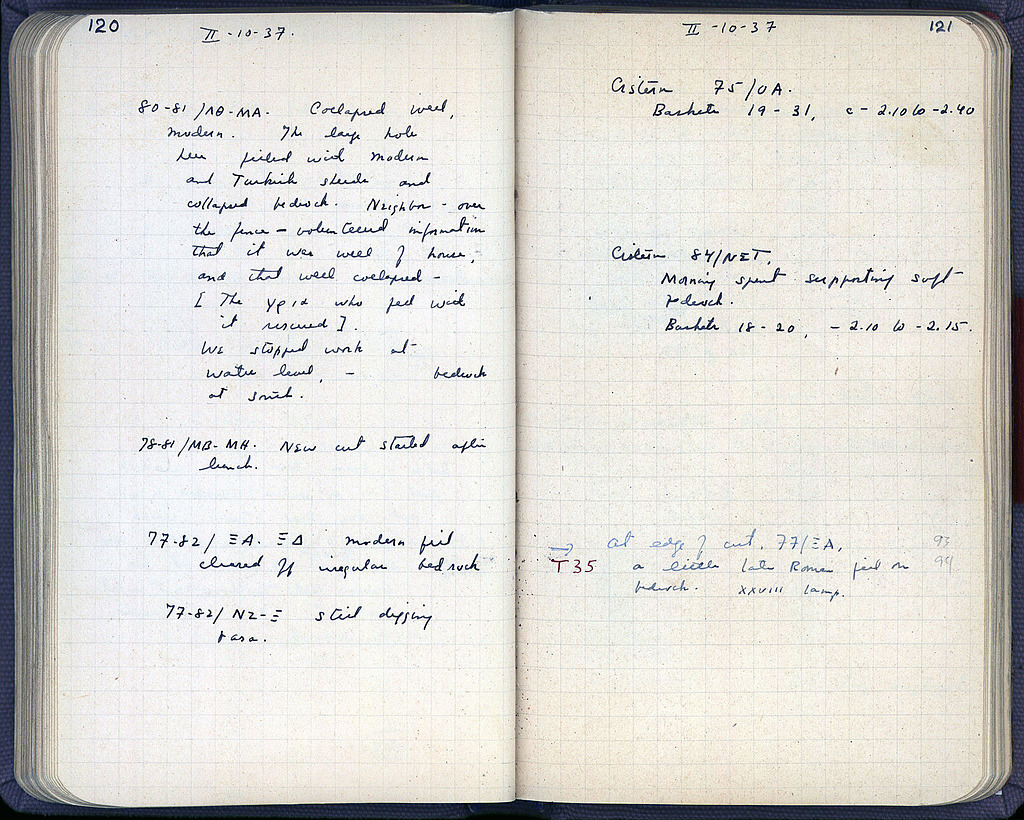 120
II-10-37.
80-81/ΛΘ-ΜΑ. Collapsed well,
modern. The large hole
here filled with modern
and Turkish sherds and
collapsed bedrock. Neighbor - over
the fence - volunteered information
that it was well of house,
and that well collapsed -
[The γριά who fell with
it rescued].
We stopped work at
water level, - bedrock
at south.
78-81/ΜΒ-ΜΗ. New cut started after
lunch.
77-82/ΞΑ-ΞΔ modern fill
cleared off irregular bedrock
77-82/ΝΖ-Ξ still digging
II-10-37
121
Cistern 75/ΟΑ.
Baskets 19-31, c-2.10 to -2.40
Cistern 84/ΝΣΤ.
Morning spent supporting soft
bedrock.
Baskets 18-20, -2.10 to -2.15.
→ at edge of cut, 77/ΞΑ, 93
T35 a little late Roman fill on 94
bedrock. XXVIII lamp.